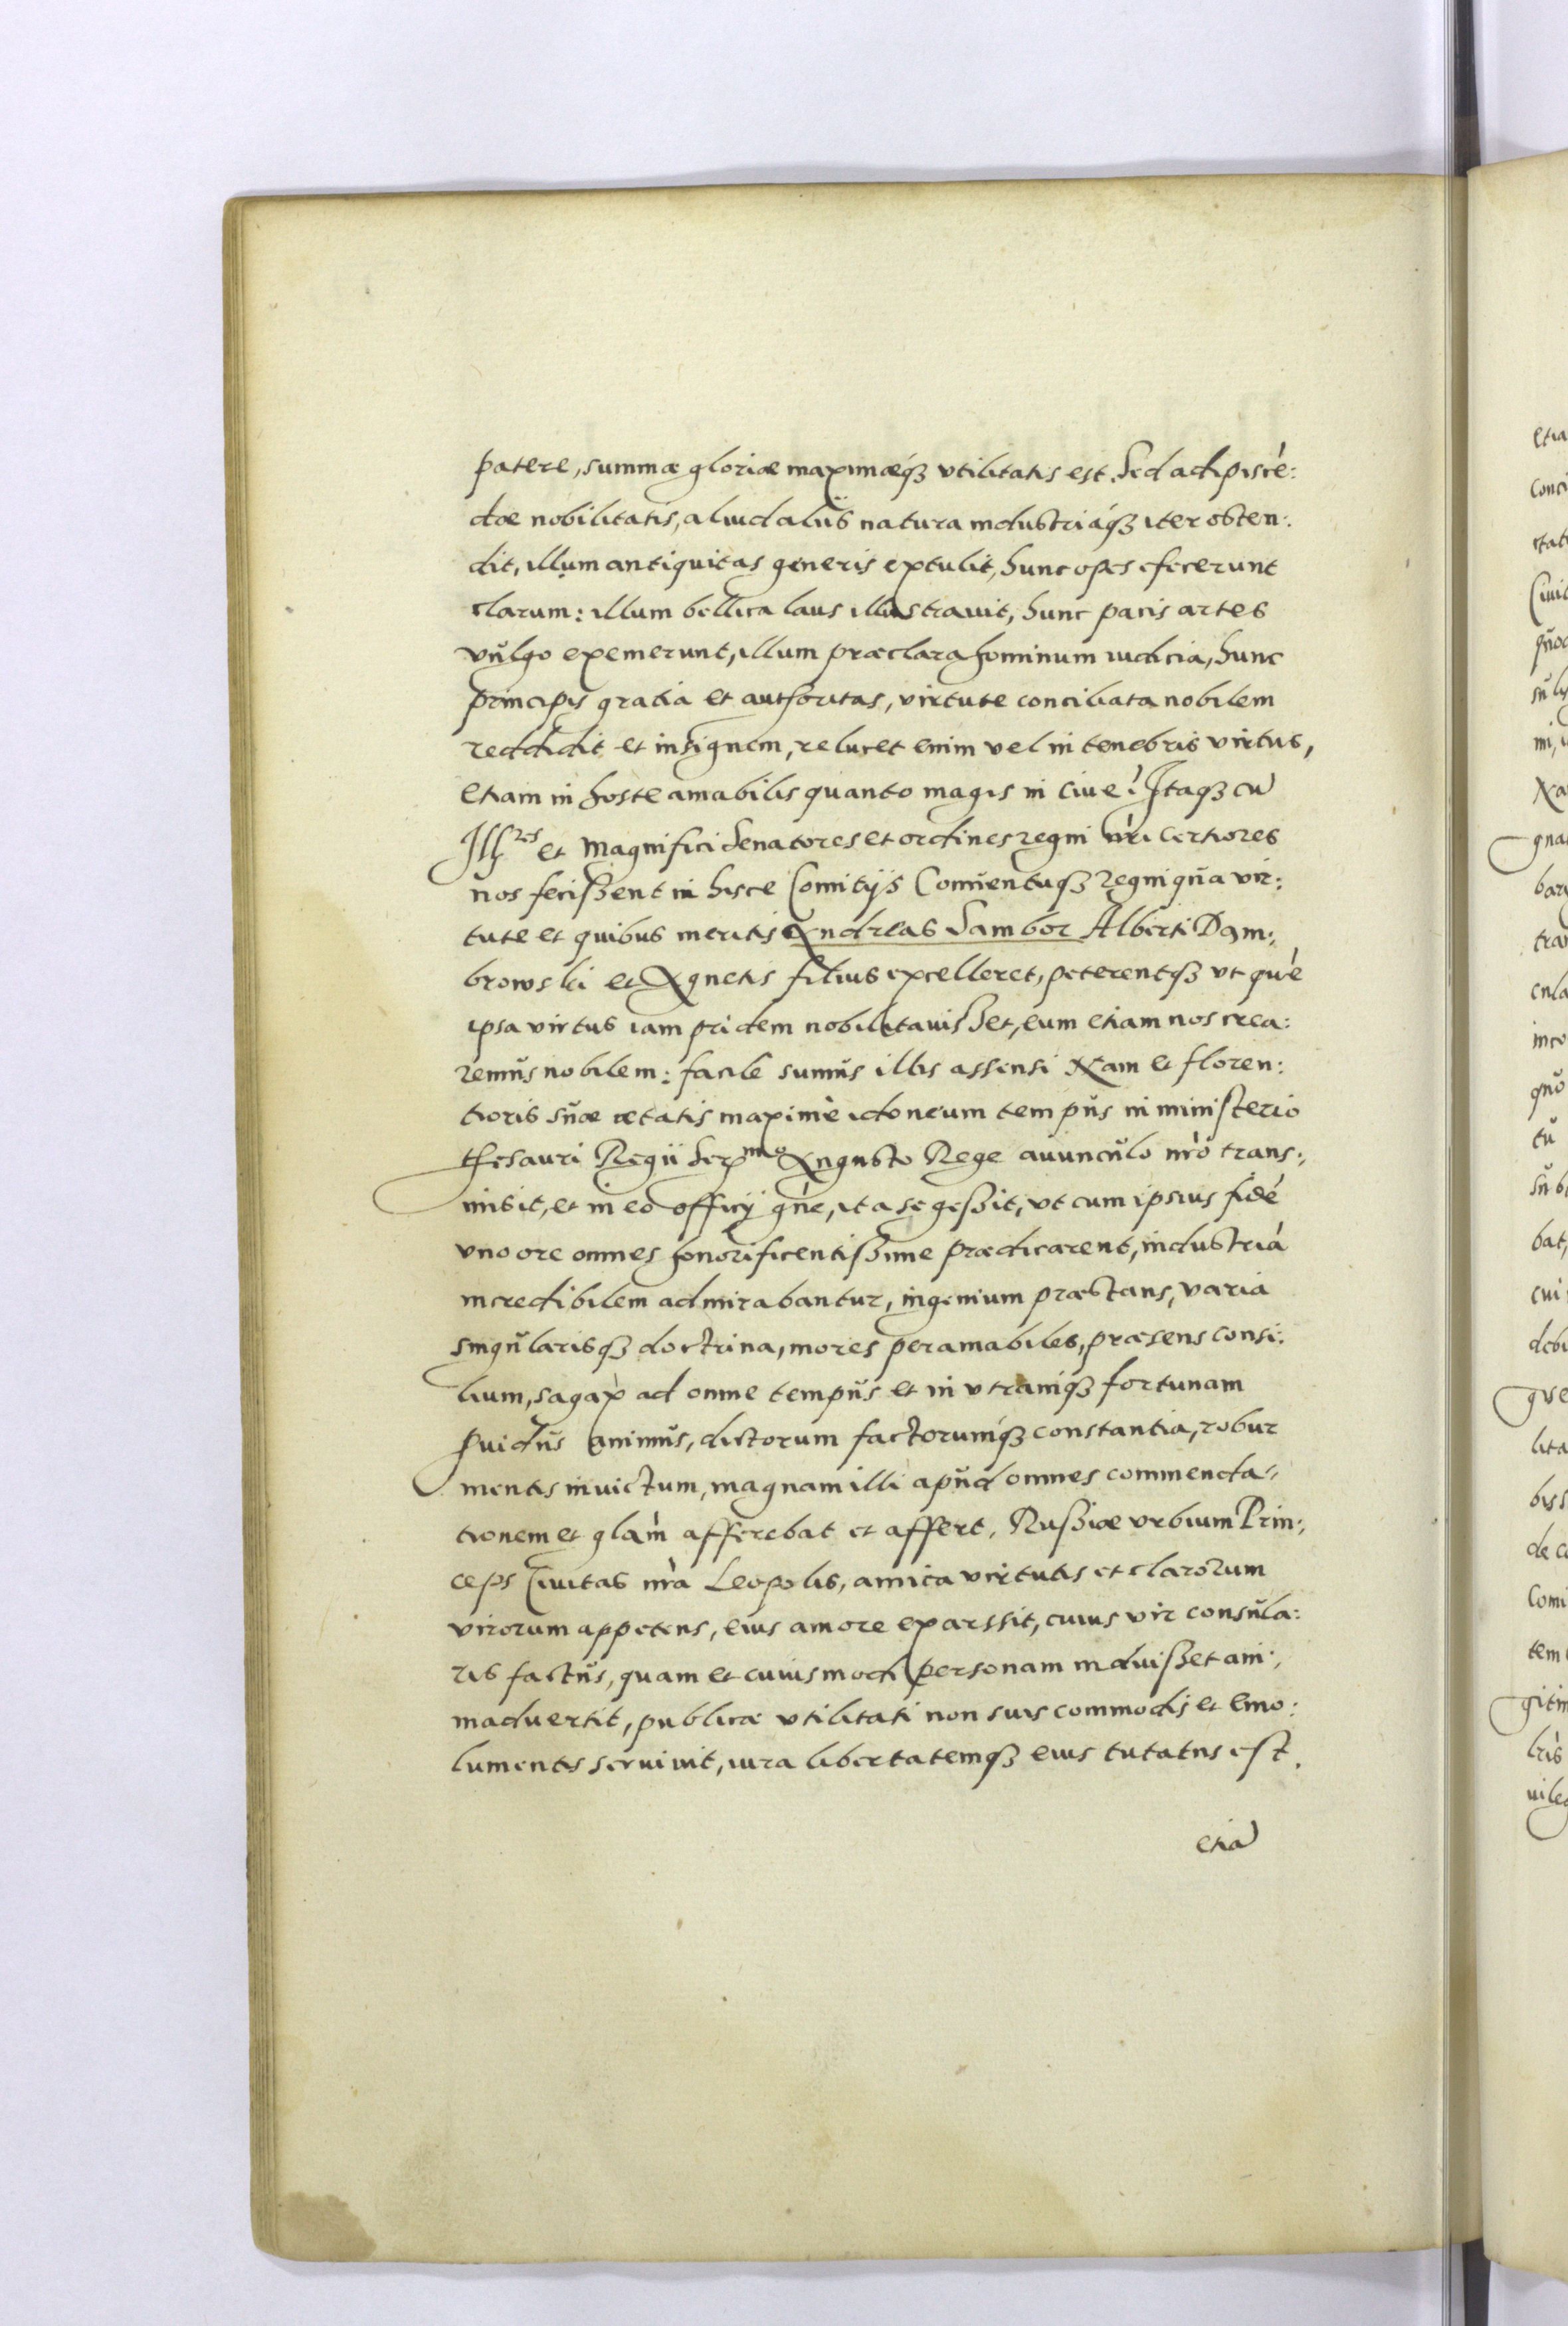 patere, summæ gloriæ maximæq́ꝫ vtilitatis est. Sed adipiscē:
dæ nobilitatis, aliud alijs natura industriáqꝫ iter osten:
dit, illum antiquitas generis extulit, hunc opes efecerunt
clarum: illum bellica laus illustrauit, hunc pacis artes
vŭlgo exemerunt, illum præclara hominum iudicia, hunc
principis gratia et authoritas, virtute conciliata nobilem
reddidit et insignem, relucet enim vel in tenebris virtus,
etiam in hoste amabilis quanto magis in ciue? Itaqꝫ cū
Illres et Magnifici Senatores et ordines regni nr̄i certiores
nos fecißent in hisce Comitijs Conŭentuqꝫ Regni qŭa vir:
tute et quibus meritis Andreas Sambor Alberti Dam:
browski et Agnetis filius excelleret, peterentqꝫ vt quē
ipsa virtus iam pridem nobilitauisset, eum etiam nos crea:
remŭs nobilem: facile sumŭs illis assensi Nam et floren:
tioris sŭæ ætatis maximè idoneum tempŭs in ministerio
thesauri Regii Sermo Augusto Rege auuncŭlo nr̄o trans:
misit, et in eo officij gñe, ita se geßit, vt cum ipsius fidē
vno ore omnes honorificentißime prædicarent, industriā
incredibilem admirabantur, ingenium præstans, varia
singŭlarisqꝫ doctrina, mores peramabiles, præsens consi:
lium, sagax ad omne tempŭs et in vtramqꝫ fortunam
prouidŭs animŭs, dictorum factorumq́ꝫ constantia, robur
mentis inuictum, magnam illi apŭd omnes commenda:
tionem et glam̄ afferebat et affert. Rußiæ vrbium Prin:
ceps Ciuitas nr̄a Leopolis, amica virtutis et clarorum
virorum appetens, eius amore exarssit, cuius vir consŭla:
ris factŭs, quam et cuiusmodi personam induißet ani:
maduertit, publicæ vtilitati non suis commodis et emo:
lumentis seruiuit, iura libertatemqꝫ eius tutatus est.
etiā